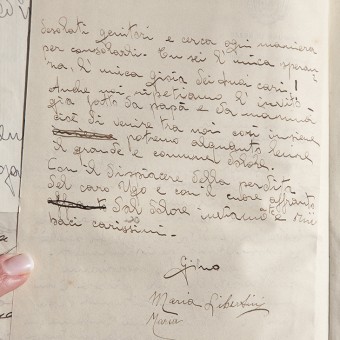 desolati genitori e cerca ogni maniera
per consolarti. Tu sei l'unica speran-
za, l'unica gioia dei tuoi cari!
Anche noi ripetiamo l'invito
già fatto da papà e da mamma
cioè di venire tra noi così insieme
potremo alquanto lenire
il grande e comune dolore.
Con il dispiacere della perdita
del caro Ugo e con il cuore affranto
dal dolore inviamo a te
baci carissimi.
Gino
Maria Libertini
Maria